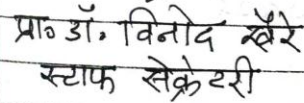 प्रा० डॉ. विनोद खैरे
स्टाफ सेक्रेटरी